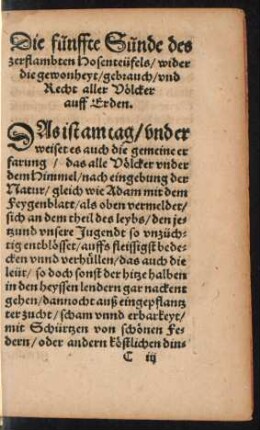 Die fünffte Sünde des
zerflambten Hosenteüfels/ wider
die gewonheyt/ gebrauch/ vnd
Recht aller Völcker
auff Erden.
DAs ist am tag/ vnd er
weiset es auch die gemeine er
farung/ das alle Völcker vnder
dem Himmel/ nach eingebung der
Natur/ gleich wie Adam mit dem
Feygenblatt/ als oben vermelder/
sich an dem theil des leybs/ den jetz
zund vnsere Jugendt so vnzüch-
tig entblösset/ auffs fleissigst bede-
cken vnnd verhüllen/ das auch die
leüt/ so doch sonst der hitze halben
in den heyssen lendern gar nackent
gehen/ dannocht auß eingepflantz
ter zucht/ scham vnnd erbarkeyt/
mit Schürtzen von schönen Fe-
dern/ oder andern köstlichen din-
C iij